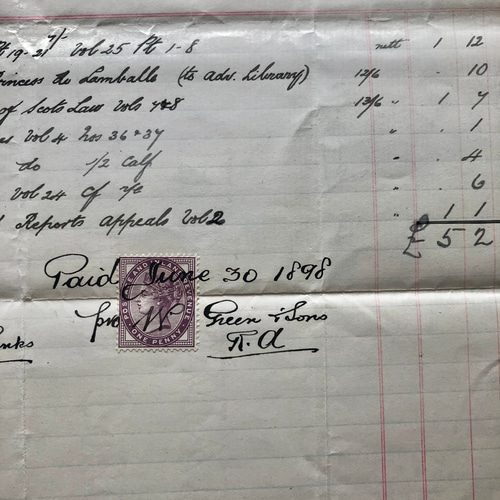 19-21 7/- Vol 25 Pt 1-8 nett 1 12
Princess de Lamballe (to Adv. Library) 12/6 " 10
of Scots Law Vols 7&8 13/6 " 1 7
Vol 4 Nos 36 & 37 " 1
do 1/2 Calf " 4
Vol 24 Cf " 6
Reports Appeals Vol 2 " 1 1
£ 5 2
Paid June 30 1898
POSTAGE AND INLAND REVENUE
ONE PENNY
pro W Green & Sons